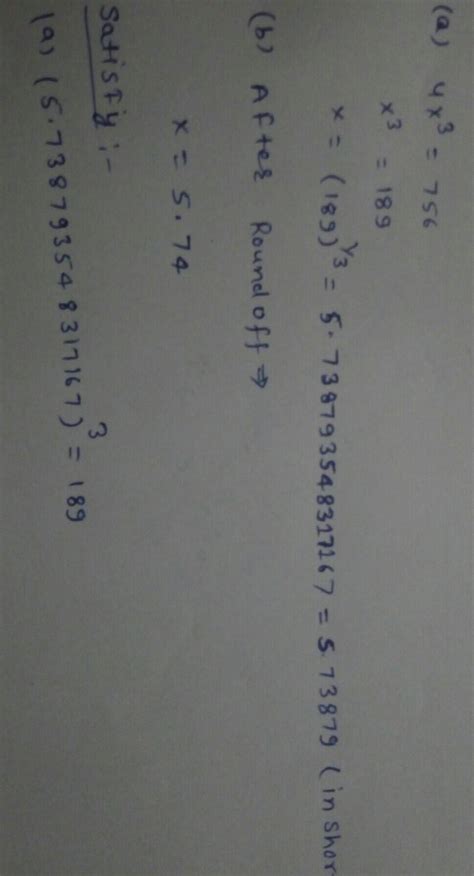 (a) 4x³ = 756
x³ = 189
x = (189)^1/3 = 5.738793548317167 = 5.73879 (in shor
(b) After Roundoff ⇒
x = 5.74
Satisfy :-
(a) (5.738793548317167)³ = 189